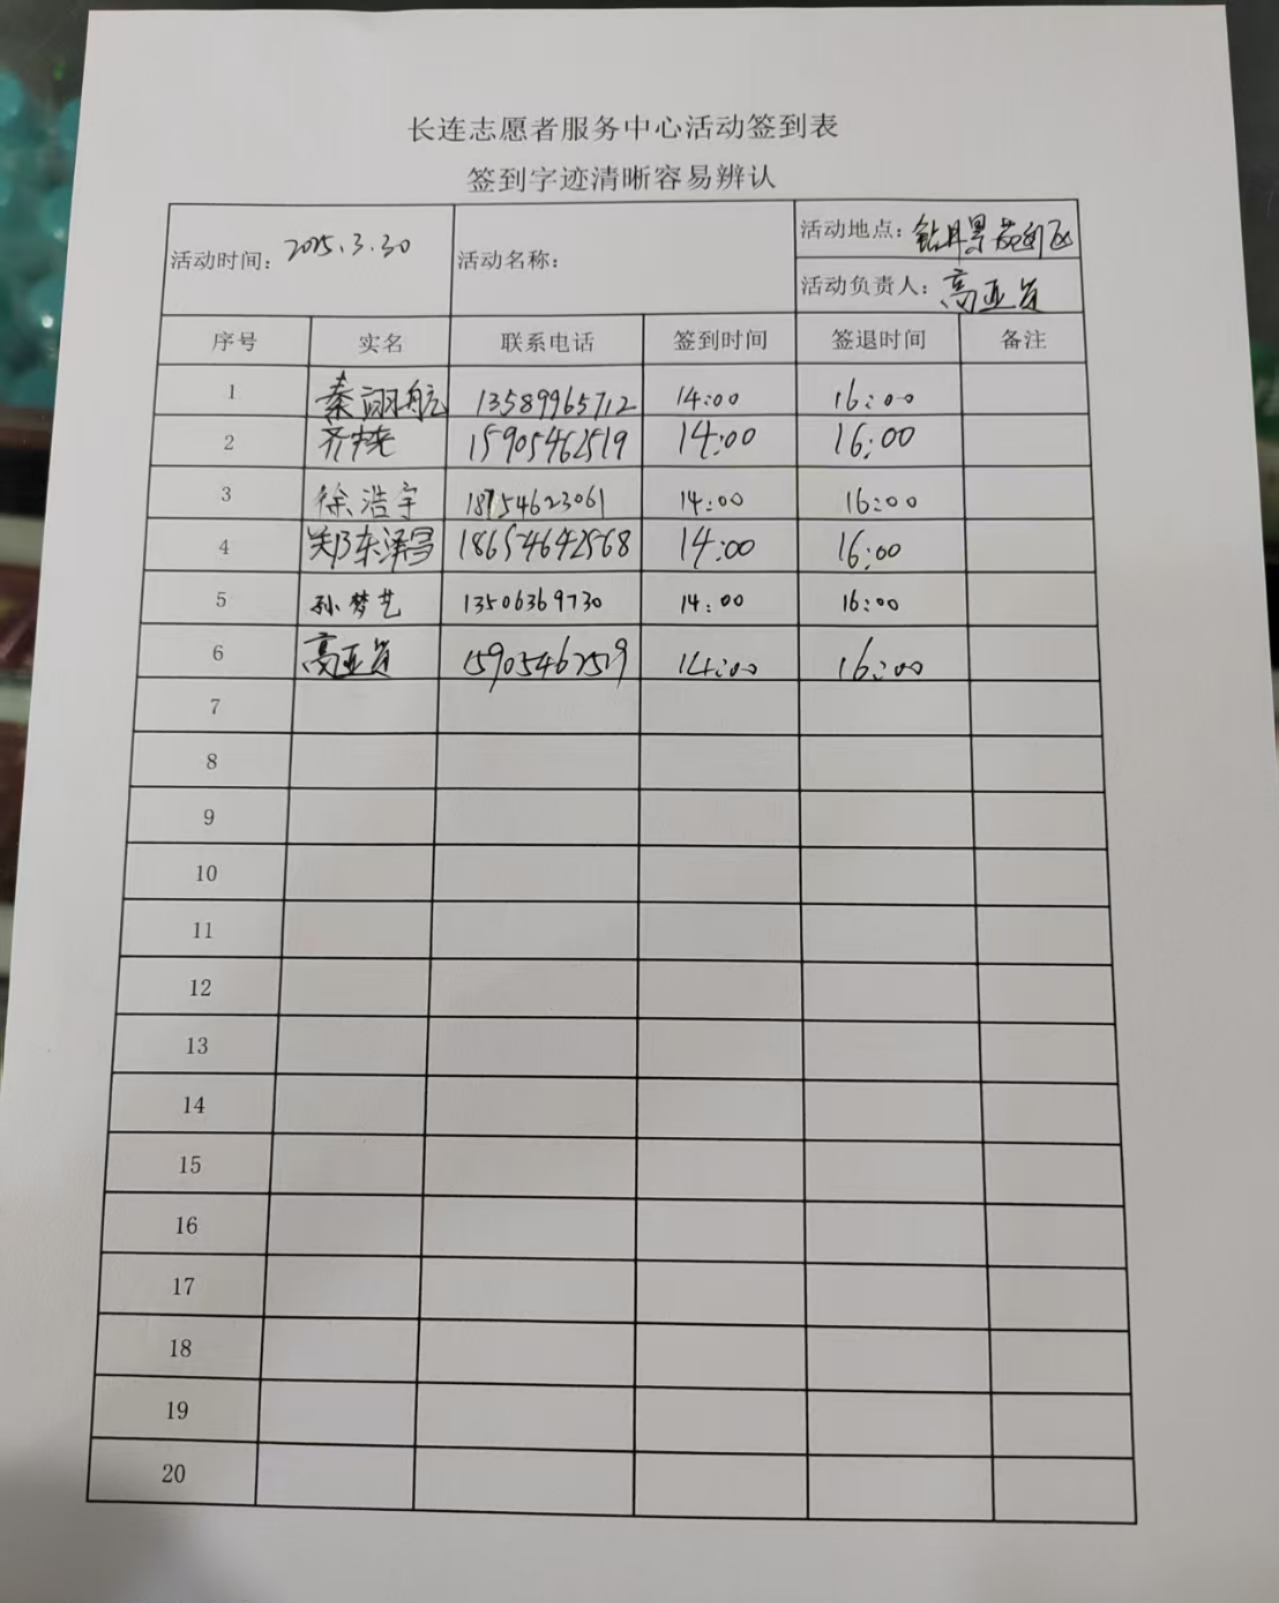 长连志愿者服务中心活动签到表
签到字迹清晰容易辨认
活动时间: 2025.3.30 活动名称: 活动地点: 景苑
活动负责人: 高亚
序号 实名 联系电话 签到时间 签退时间 备注
1 秦翊航 13589965712 14:00 16:00
2 齐 15905462519 14:00 16:00
3 徐浩宇 18754623061 14:00 16:00
4 郑东泽昌 18654642568 14:00 16:00
5 孙梦艺 13506369730 14:00 16:00
6 高亚 15905462519 14:00 16:00
7
8
9
10
11
12
13
14
15
16
17
18
19
20